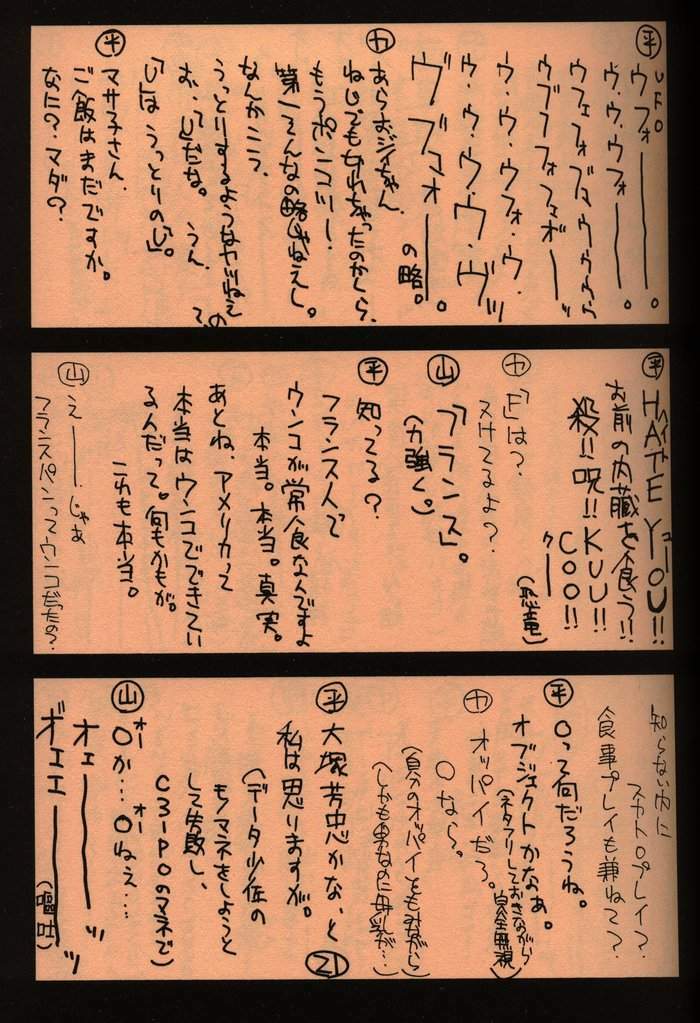 ㊥
UFO
ウフォーーー。
ウ・ウ・ウフォーーー。
ウフェフォブマウウウウ
ウブフフォフェボーッ
ウ・ウ・ウフォ・ウ・
ウ・ウ・ウ・ウ・ヴッ
ヴブフォーーー。
の略。
カ
あらおジイちゃん
ねじでもなれちゃったのかしら、
もうポンコツー!
第一そんなの略じゃねえし。
なんかこう、
うっとりするようなヤツじゃねえの
お、「U」だな。 うん、 て、
「U」は うっとりの「U」。
平
マサ子さん、
ご飯はまだですか。
なに?マダ?
平
HATE YOU!!
ヘイト ユー
お前の内臓を食う!!
殺!!呪!!KUU!!
COO!!
クー
(恐竜)
カ
「F」は?
ヌけてるよ?
山
「フランス」。
(力強く。)
平
知ってる?
フランス人で
ウンコが常食なんですよ
本当。本当。真実。
あとね、アメリカって
本当はウンコでできてい
るんだって。何もかもが。
これも本当。
山
えー―。じゃあ
フランスパンってウンコだったの?
知らない内に
スカトロプレイ?
食事プレイも兼ねて?
平
Oって何だろうね。
オブジェクトかなぁ。
(ネタフリしておきながら
完全無視)
カ
オッパイだろ。
Oなら。
(自分のオッパイをもみながら)
(しかも男なのに母乳が…)
平
大塚芳忠かな、と
私は思いますが。
(データ少佐の
モノマネをしようと
して失敗し、
C3-POのマネで)
21
山
Oか…Oねぇ…
オー オー
オェーーーッ
ギェエーーーッ
(嘔吐)